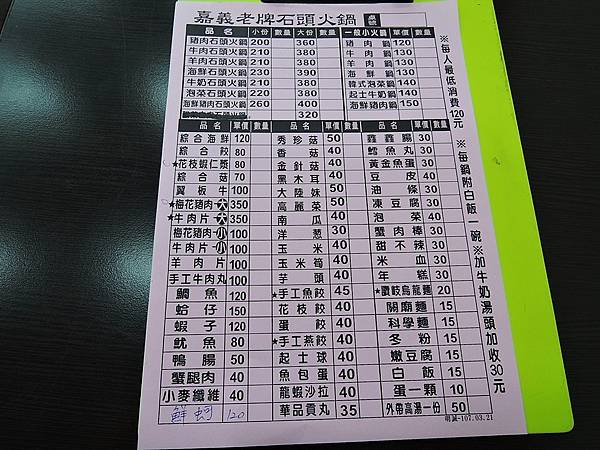 嘉義老牌石頭火鍋 桌號
品名 小份 大份 數量 一般小火鍋 單價 數量
豬肉石頭火鍋 200 360 豬肉鍋 120
牛肉石頭火鍋 210 380 牛肉鍋 130
羊肉石頭火鍋 210 380 羊肉鍋 130
海鮮石頭火鍋 230 390 海鮮鍋 130
牛奶石頭火鍋 210 380 韓式泡菜鍋 140
泡菜石頭火鍋 220 380 起士牛奶鍋 140
海鮮豬肉石頭火鍋 260 400 海鮮豬肉鍋 150
320
品名 單價 數量 品名 單價 數量 品名 單價 數量
綜合海鮮 120 秀珍菇 50 鑫鑫腸 30
綜合餃 80 香菇 40 鱈魚丸 30
★花枝蝦仁漿 80 金針菇 40 黃金魚蛋 30
綜合菇 70 黑木耳 40 豆皮 40
翼板牛 100 大陸妹 50 油條 30
★梅花豬肉-大 350 高麗菜 50 凍豆腐 30
★牛肉片-大 350 南瓜 40 泡菜 40
梅花豬肉-小 100 洋蔥 30 蟹肉棒 30
牛肉片-小 100 玉米 40 甜不辣 30
羊肉片 100 玉米筍 40 米血 30
手工牛肉丸 100 芋頭 40 年糕 30
鯛魚 120 ★手工魚餃 45 ★讚岐烏龍麵 20
蛤仔 150 花枝餃 40 關廟麵 15
蝦子 120 蛋餃 40 科學麵 15
魷魚 80 ★手工燕餃 40 冬粉 15
鴨腸 50 起士球 40 嫩豆腐 15
蟹腿肉 40 魚包蛋 40 白飯 15
小麥纖維 40 龍蝦沙拉 40 蛋一顆 10
鮮蚵 120 華品貢丸 35 外帶高湯一份 50
明誠-107.03.21
※每人最低消費120元
※每鍋附白飯一碗
※加牛奶湯頭加收30元